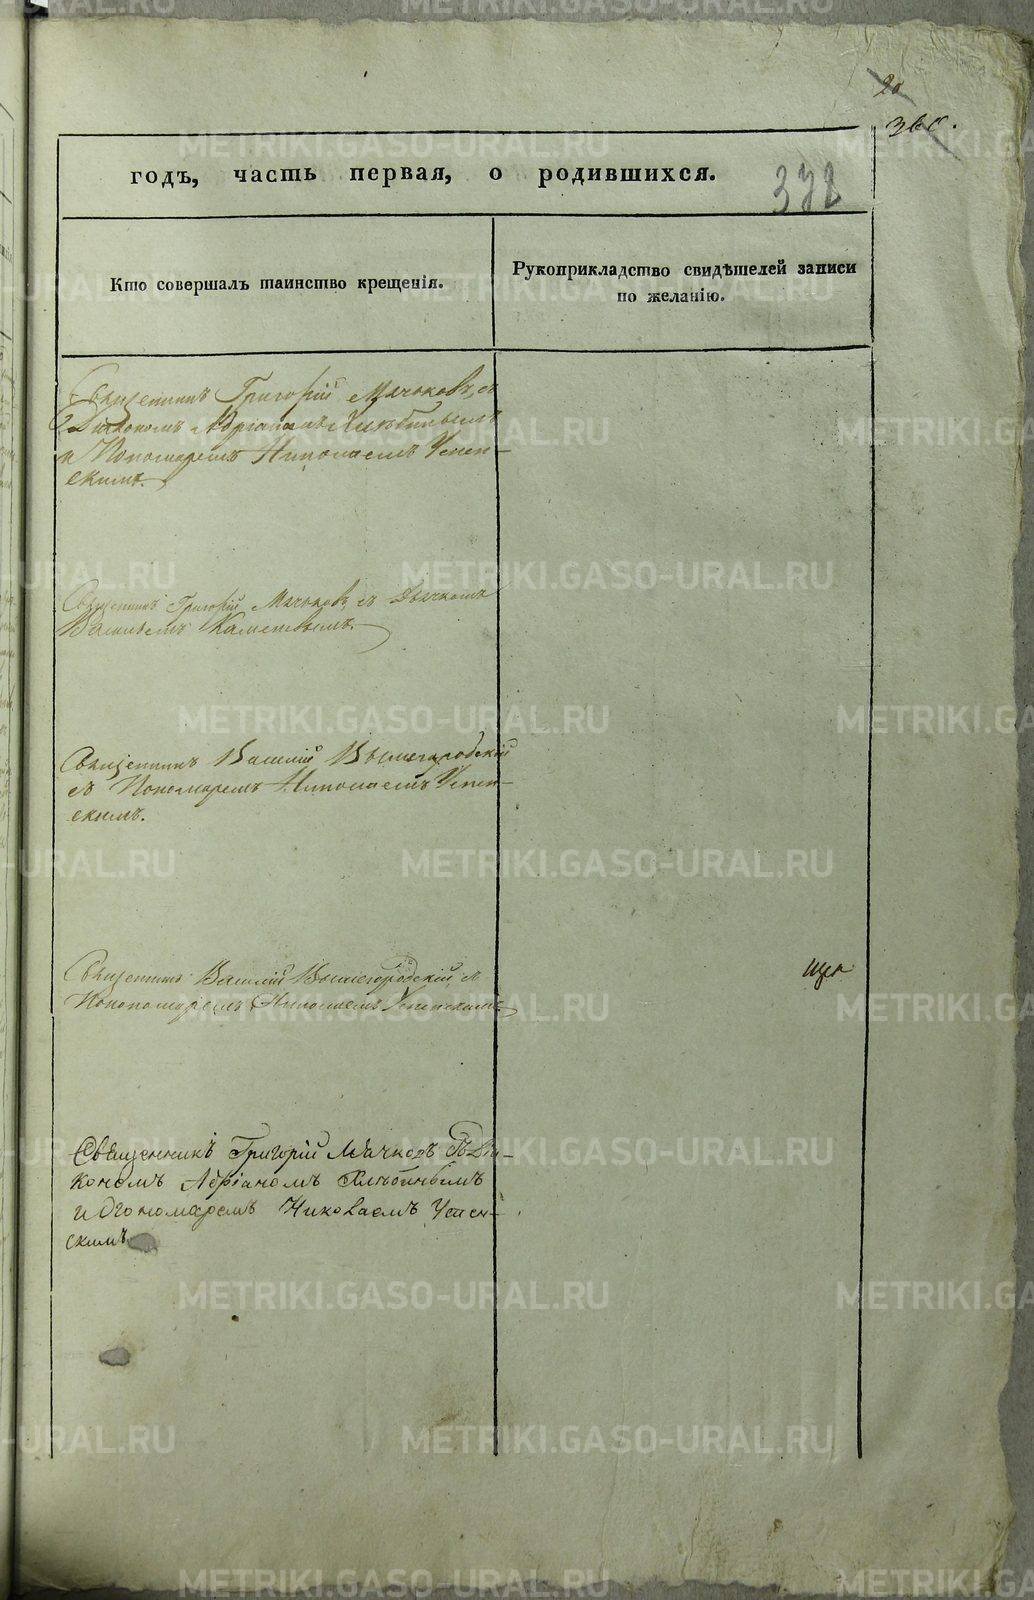 20
360.
годъ, часть первая, о родившихся.
372
Кто совершалъ таинство крещенія.
Рукоприкладство свидѣтелей записи
по желанію.
Священникъ Григорій Мячковъ, съ
Діакономъ Адріаномъ Хлѣбинымъ
и Пономаремъ Николаемъ Успен-
скимъ.
Священникъ Григорій Мячковъ, съ Дьячкомъ
Васильемъ
Священникъ Василій Вышегородскій
съ Пономаремъ Николаемъ Успен-
скимъ.
Священникъ Василій Вышегородскій
Николаемъ Успенскимъ.
Священникъ Григорій Мячковъ съ Діа-
кономъ Адріаномъ Хлѣбинымъ
и Пономаремъ Николаемъ Успен-
скимъ
METRIKI.GASO-URAL.RU